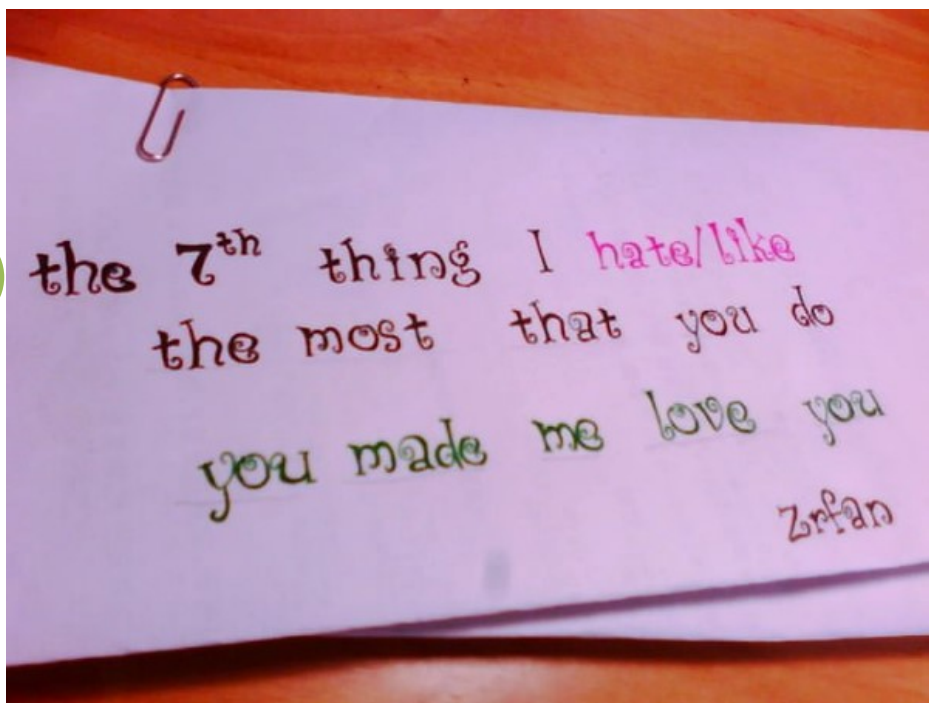 the 7th thing I hate/like
the most that you do
you made me love you
zrfan